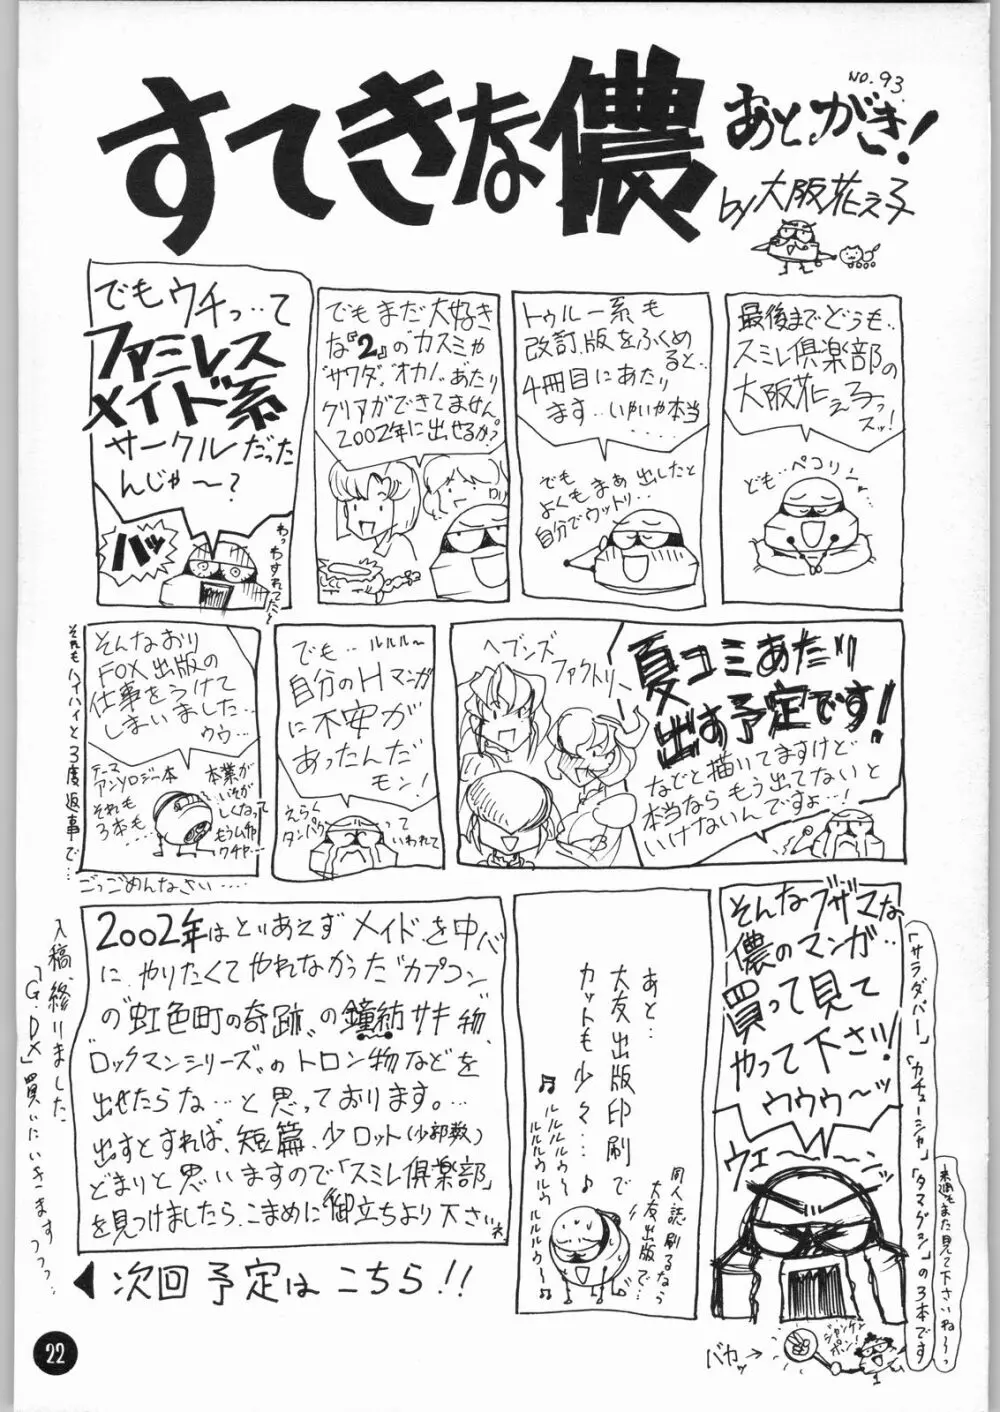 すてきな儂
NO.93.
あとがき!
by 大阪花え子
最後までどうも..
スミレ倶楽部の
大阪花え子っ
スッ!
ども..ペコリ
トゥルー系も
改訂版をふくめ
ると...
4冊目にあたり
ます..いやいや本当
でも
よくもまぁ出したと
自分でウットリ...
でもまだ大好き
な『2』のカスミや
"サワダ"、"オカノ"あたり
クリアができてません
2002年に出せるか?
でもウチっ...って
ファミレス
メイド系
サークルだった
んじゃ〜?
ハッ
わっわすれてた〜
夏コミあたり
出す予定です!
などと描いてますけど
本当ならもう出てないと
いけないんですょ...!
ヘブンズ
ファクトリー
でも..ルルル〜
自分のHマンガ
に不安が
あったんだ
モン!
えらく
タンパク
って
いわれて
そんなおり
FOX出版の
仕事をうけて
しまいました...
ウウ...
テーマ
アンソロジー本
それも
3本も...
本業が
いそが
しくなって
もうムチャ
ウチャ...
それもハイハイと3度返事で...
ごっごめんなさい....
そんなブザマな
儂のマンガ..
買って見て
やって下さい!
ウゥゥ〜ッ
ウェーーーン
「サラダバー」「カチューシャ」「タマグン」の3本です
来週もまた見て下さいね〜っ
ジャンケン
ポン!
バカッ→
あと...
大友出版印刷で
カットも少々...♪
♬ルルルルゥ〜
ルルルゥルゥルゥ
ルルルゥ〜♬
同人誌刷るなら
大友出版で...
2002年はとりあえずメイドを中心
に、やりたくてやれなかった"カプコン"
の"虹色町の奇跡"の鐘紡サキ物、
"ロックマンシリーズ"のトロン物などを
出せたらな...と思っております。...
出すとすれば、短篇、少ロット(少部数)
どまりと思いますので「スミレ倶楽部」
を見つけましたら、こまめに御立ちより下さいネ
◀次回予定はこちら!!
入稿、終りました
「G.DX」買いにいきますっっっ...
22